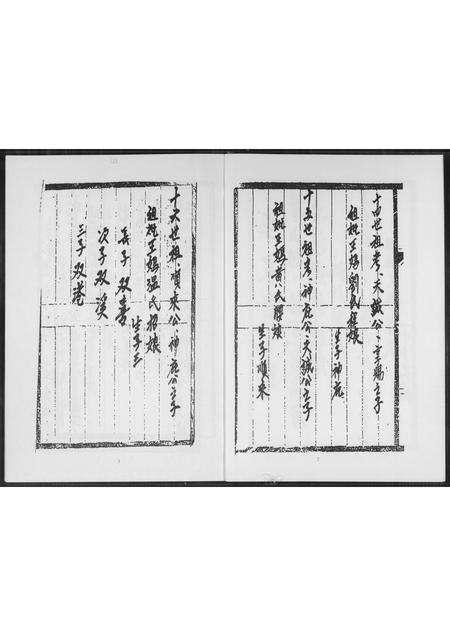 十四世祖考、天鉞公、
祖妣王孺劉氏
生子神庇
十五世祖考、神庇公、天鉞公之子
祖妣王孺黃氏
生子順來
十六世祖、順來公、神庇公之子
祖妣王孺温氏招娘
生子三
長子双喜
次子双溪
三子双港